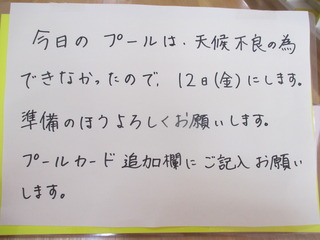 今日の プールは、天候不良の為
できなかったので、12日(金)にします。
準備のほうよろしくお願いします。
プールカード 追加欄にご記入お願い
します。